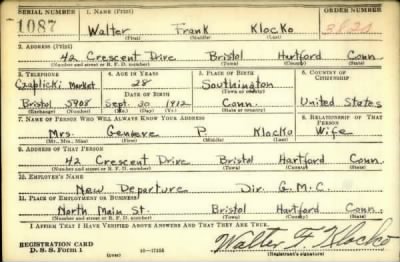 SERIAL NUMBER 1. NAME (Print) ORDER NUMBER
1087 Walter Frank Klocko
(First) (Middle) (Last)
2. ADDRESS (Print)
42 Crescent Drive Bristol Hartford Conn.
(Number and street or R. F. D. number) (Town) (County) (State)
3. TELEPHONE 4. AGE IN YEARS 5. PLACE OF BIRTH 6. COUNTRY OF CITIZENSHIP
Czaplicki Market 28 Southington
DATE OF BIRTH (Town or county)
Bristol 5908 Sept. 30 1912 Conn. United States
(Exchange) (Number) (Mo.) (Day) (Yr.) (State or country)
7. NAME OF PERSON WHO WILL ALWAYS KNOW YOUR ADDRESS 8. RELATIONSHIP OF THAT PERSON
Mrs. P. Klocko Wife
(Mr., Mrs., Miss) (First) (Middle) (Last)
9. ADDRESS OF THAT PERSON
42 Crescent Drive Bristol Hartford Conn.
(Number and street or R. F. D. number) (Town) (County) (State)
10. EMPLOYER'S NAME
New Departure Div. G.M.C.
11. PLACE OF EMPLOYMENT OR BUSINESS
North Main St. Bristol Hartford Conn.
(Number and street or R. F. D. number) (Town) (County) (State)
I AFFIRM THAT I HAVE VERIFIED ABOVE ANSWERS AND THAT THEY ARE TRUE.
REGISTRATION CARD
D. S. S. Form 1 (over) Walter F. Klocko
(Registrant's signature)